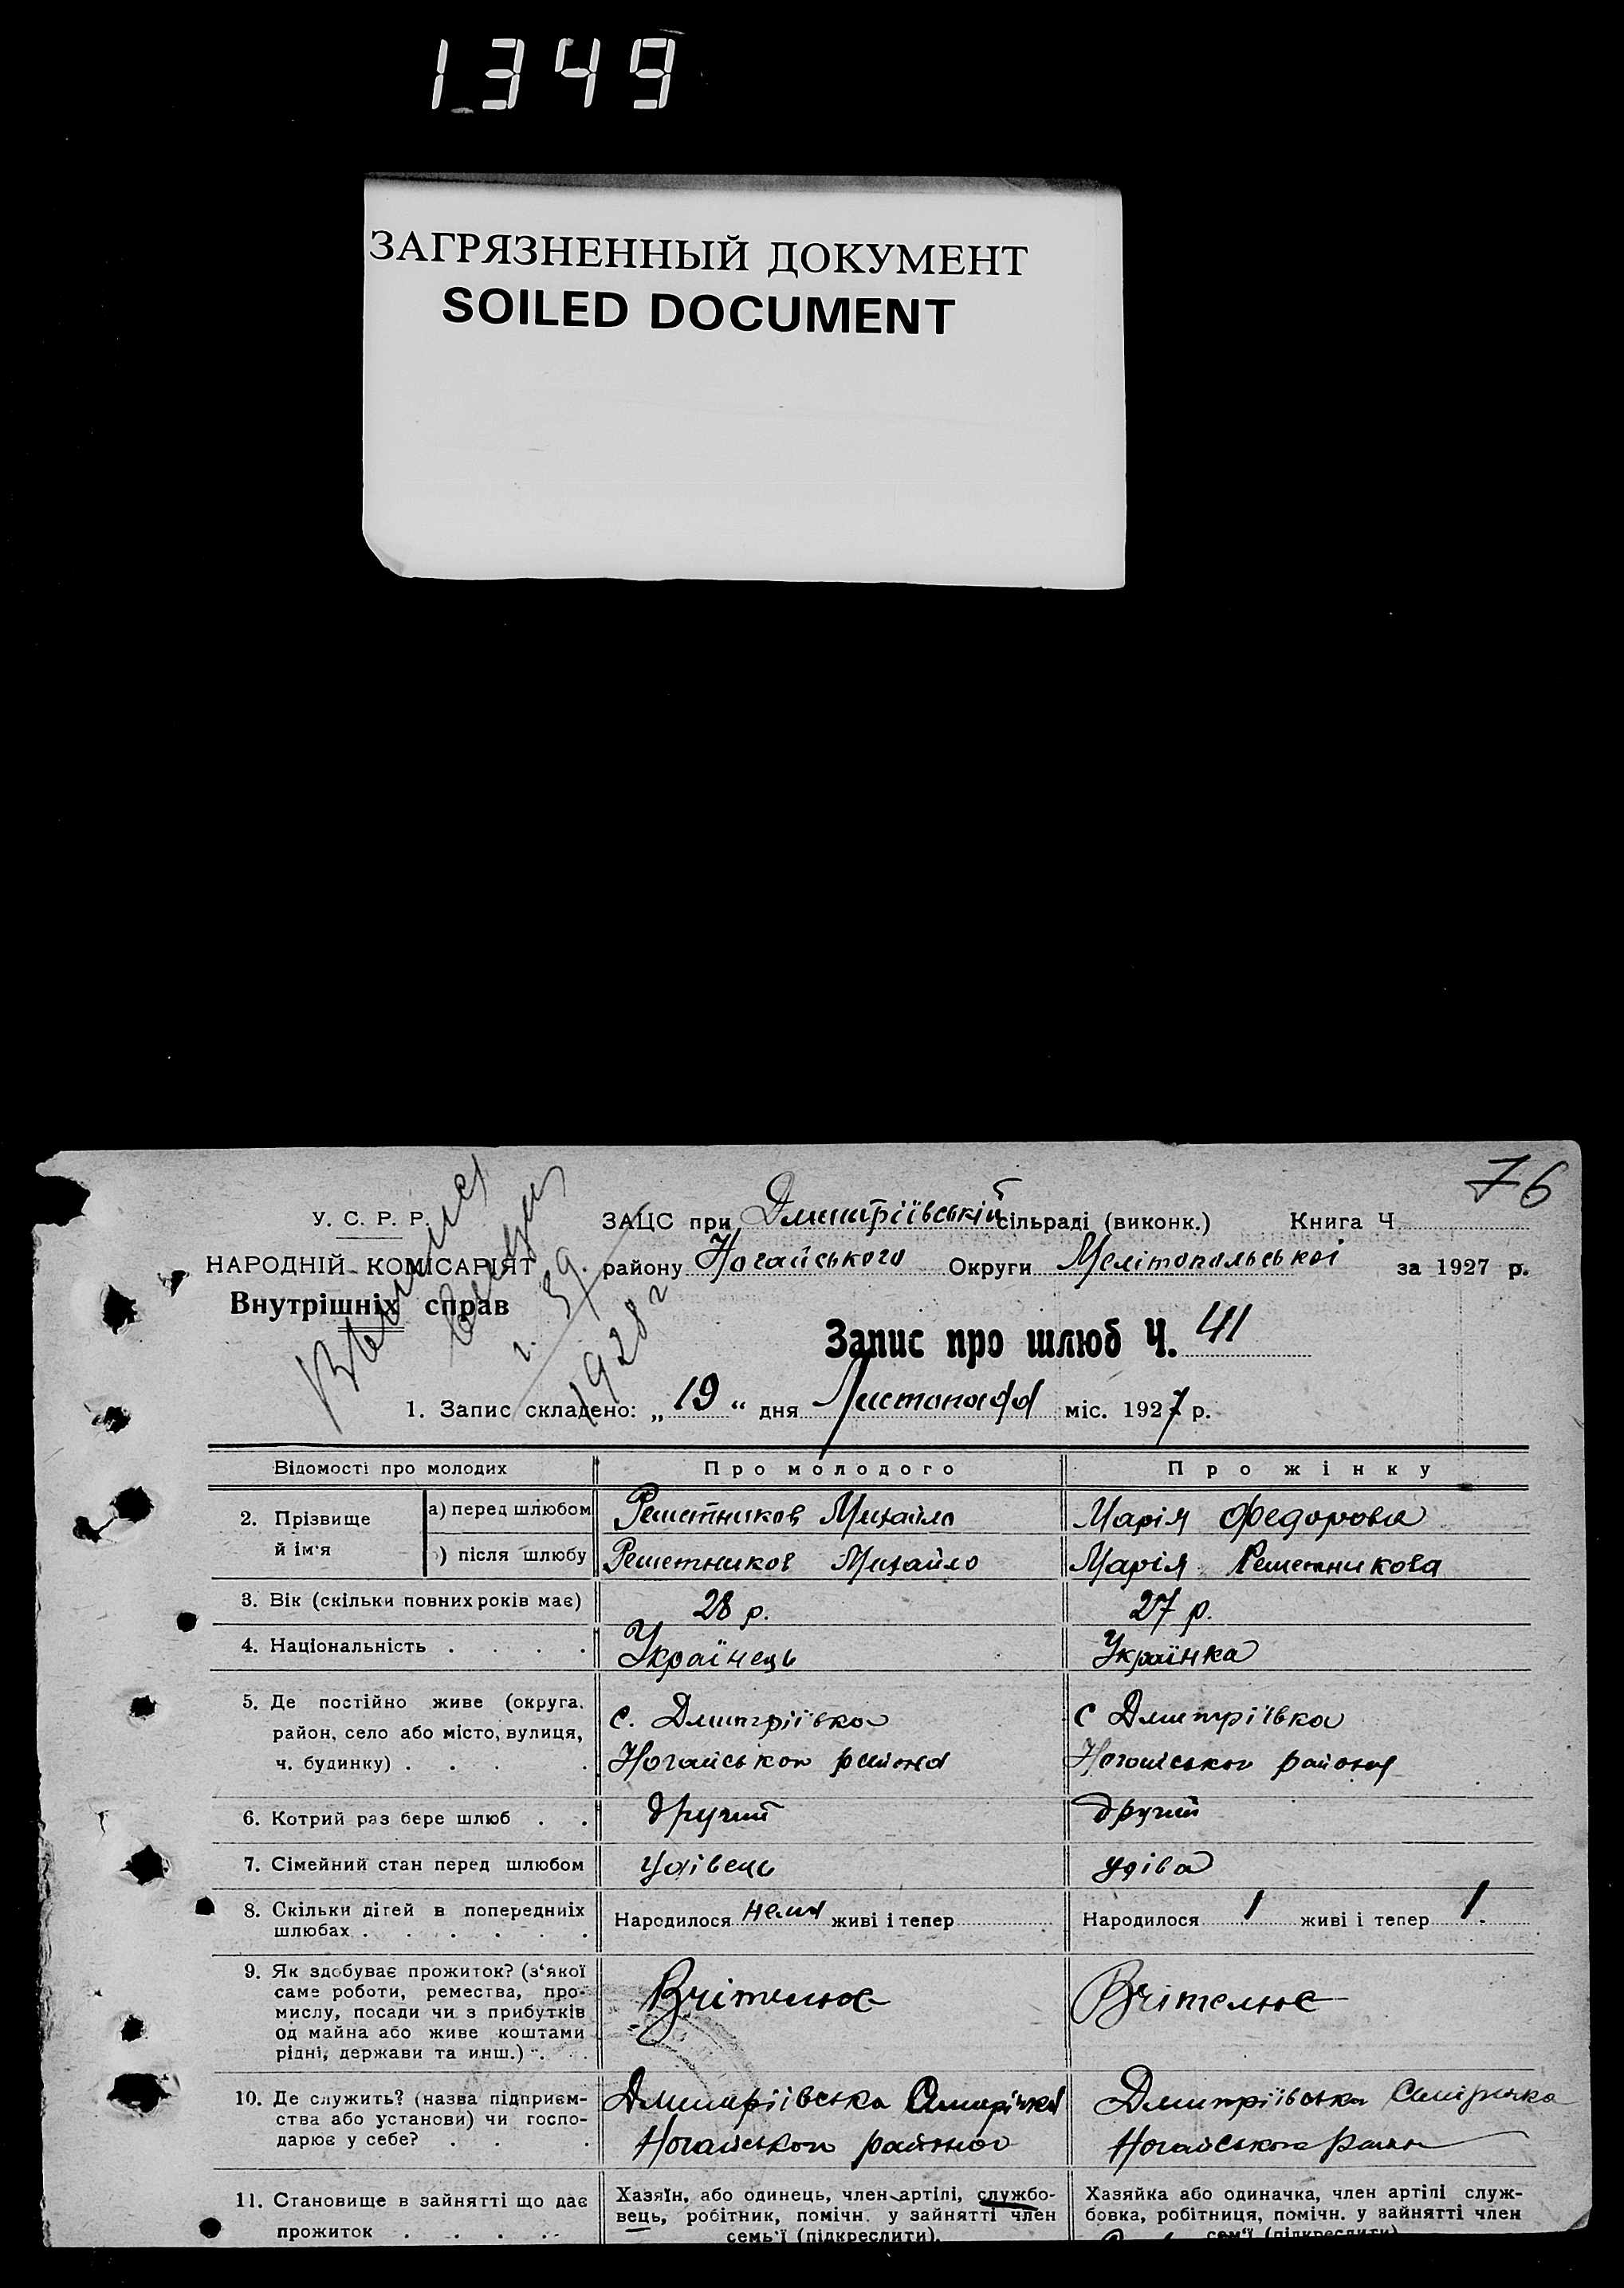 1349
ЗАГРЯЗНЕННЫЙ ДОКУМЕНТ
SOILED DOCUMENT
76
У. С. Р. Р.
НАРОДНІЙ КОМІСАРІЯТ
Внутрішніх справ
1928 г
ЗАЦС при Дмитріївській сільраді (виконк.) Книга Ч.
району Ногайського Округи Мелітопольської за 1927 р.
Запис про шлюб Ч. 41
1. Запис складено: „19“ дня Листопада міс. 1927 р.
Відомості про молодих
Про молодого
Про жінку
2. Прізвище й ім'я
а) перед шлюбом
Решетников Михайло
Марія Федорова
) після шлюбу
Решетников Михайло
Марія Решетникова
3. Вік (скільки повних років має)
28 р.
27 р.
4. Національність . . . .
Українець
Українка
5. Де постійно живе (округа,
район, село або місто, вулиця,
ч. будинку) . . . .
с. Дмитріївка
Ногайського района
с Дмитріївка
Ногайського района
6. Котрий раз бере шлюб . .
другий
другий
7. Сімейний стан перед шлюбом
удівець
удіва
8. Скільки дітей в попередніх
шлюбах . . . . . .
Народилося нема живі і тепер
Народилося 1 живі і тепер 1.
9. Як здобуває прожиток? (з'якої
саме роботи, ремества, про-
мислу, посади чи з прибутків
од майна або живе коштами
рідні, держави та инш.) . .
Вчітелює
Вчітелює
10. Де служить? (назва підприєм-
ства або установи) чи госпо-
дарює у себе? . . .
Дмитріївська
Ногайського района
Дмитріївська
Ногайського
11. Становище в зайнятті що дає
прожиток . . . . .
Хазяїн, або одинець, член артілі, службо-
вець, робітник, помічн. у зайнятті член
семь'ї (підкреслити).
Хазяйка або одиначка, член артілі служ-
бовка, робітниця, помічн. у зайнятті член
сем'ї (підкреслити)